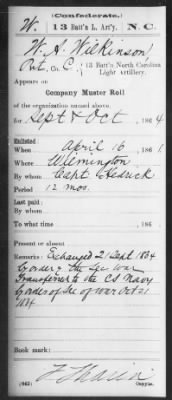 (Confederate.)
W. 13 Batt'n L. Art'y. N. C.
W. A. Wilkinson
Pvt, Co. C, 13 Batt'n North Carolina Light Artillery.
Appears on
Company Muster Roll
of the organization named above,
for Sept & Oct, 1864
Enlisted
When April 16, 1861
Where Wilmington
By whom Capt Hedrick
Period 12 mos.
Last paid:
By whom
To what time , 186
Present or absent
Remarks: Exchanged 21 Sept 1864
by order of the Sec War
Transferred to the CS Navy
by order of Sec of war Oct 21
1864
Book mark:
(642) Copyist.